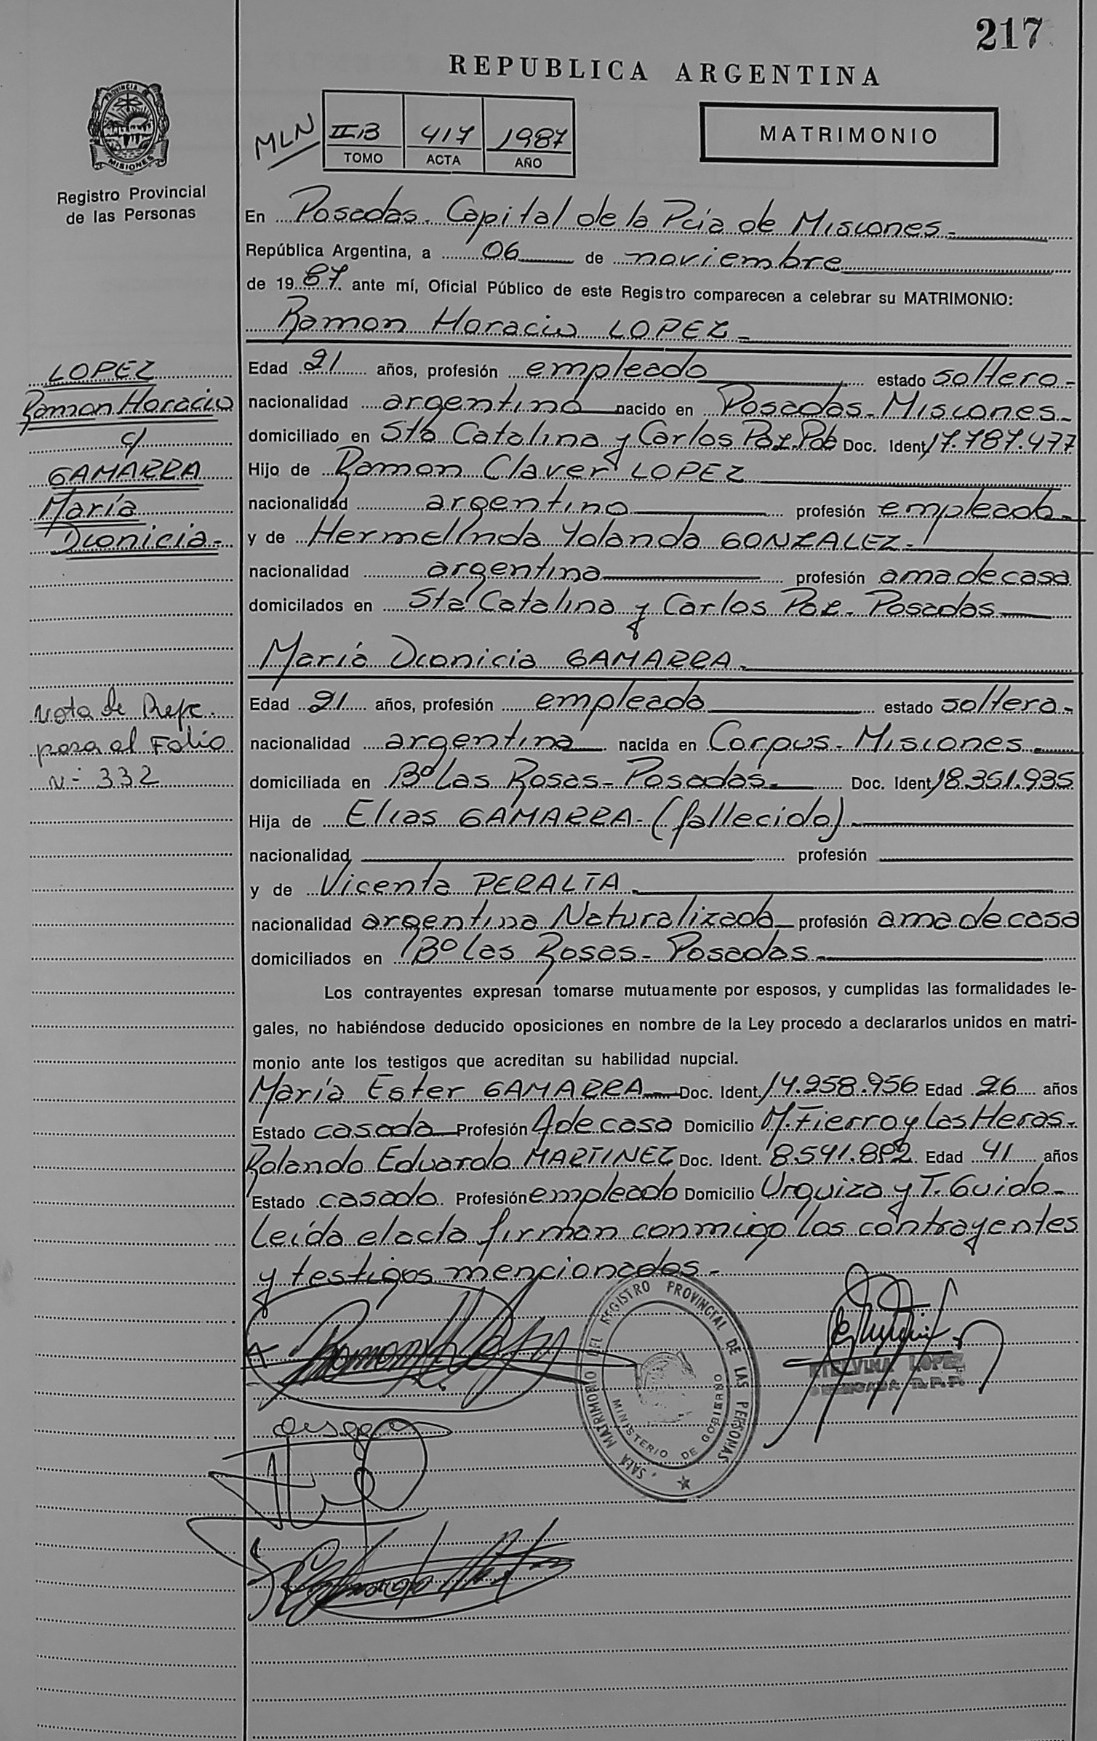 217
REPUBLICA ARGENTINA
PROVINCIA DE MISIONES
Registro Provincial
de las Personas
MLN
IIB 417 1987
TOMO ACTA AÑO
MATRIMONIO
En Posadas. Capital de la Pcia de Misiones.-
República Argentina, a 06 de noviembre
de 1987 ante mí, Oficial Público de este Registro comparecen a celebrar su MATRIMONIO:
Ramon Horacio LOPEZ.-
LOPEZ
Ramon Horacio
c/
GAMARRA
María
Dionicia.-
Edad 21 años, profesión empleado estado soltero.-
nacionalidad argentino nacido en Posadas-Misiones.-
domiciliado en Sta Catalina y Carlos Paz. Pdas Doc. Ident. 17.787.477
Hijo de Ramon Claver LOPEZ
nacionalidad argentino profesión empleado.-
y de Hermelinda Yolanda GONZALEZ.-
nacionalidad argentina profesión ama de casa
domicilados en Sta Catalina y Carlos Paz. Posadas
María Dionicia GAMARRA.
Edad 21 años, profesión empleada estado soltera.-
nacionalidad argentina nacida en Corpus-Misiones.-
domiciliada en Bº Las Rosas-Posadas.- Doc. Ident. 18.351.935
Nota de Refe.
para al Folio
Nº 332
Hija de Elias GAMARRA-(fallecido).-
nacionalidad profesión
y de Vicenta PERALTA.
nacionalidad argentina Naturalizada profesión ama de casa
domiciliados en Bº Las Rosas-Posadas.-
Los contrayentes expresan tomarse mutuamente por esposos, y cumplidas las formalidades le-
gales, no habiéndose deducido oposiciones en nombre de la Ley procedo a declararlos unidos en matri-
monio ante los testigos que acreditan su habilidad nupcial.
María Ester GAMARRA Doc. Ident. 14.258.956 Edad 26 años
Estado casada Profesión A de casa Domicilio M. Fierro y Las Heras.-
Rolando Eduardo MARTINEZ Doc. Ident. 8.541.882 Edad 41 años
Estado casado. Profesión empleado Domicilio Urquiza y T. Guido.-
Leída el acta firman conmigo los contrayentes
y testigos mencionados.-
SALA MATRIMONIO DEL REGISTRO PROVINCIAL DE LAS PERSONAS
MINISTERIO DE GOBIERNO
Ramon H Lopez
ETELVINA LOPEZ